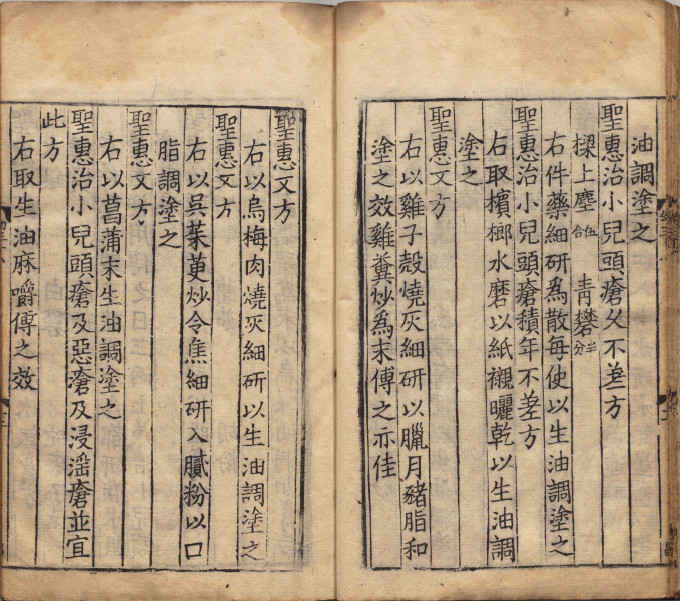 油調塗之
聖惠治小兒頭瘡久不差方
樑上塵伍合 青礬半分
右件藥細研為散每使以生油調塗之
聖惠治小兒頭瘡積年不差方
右取檳榔水磨以紙襯曬乾以生油調
塗之
聖惠又方
右以雞子殼燒灰細研以臘月豬脂和
塗之效雞糞炒為末傅之亦佳
聖惠又方
右以烏梅肉燒灰細研以生油調塗之
聖惠又方
右以吳茱萸炒令焦細研入膩粉以口
脂調塗之
聖惠又方
右以菖蒲末生油調塗之
聖惠治小兒頭瘡及惡瘡及浸淫瘡並宜
此方
右取生油麻嚼傅之效